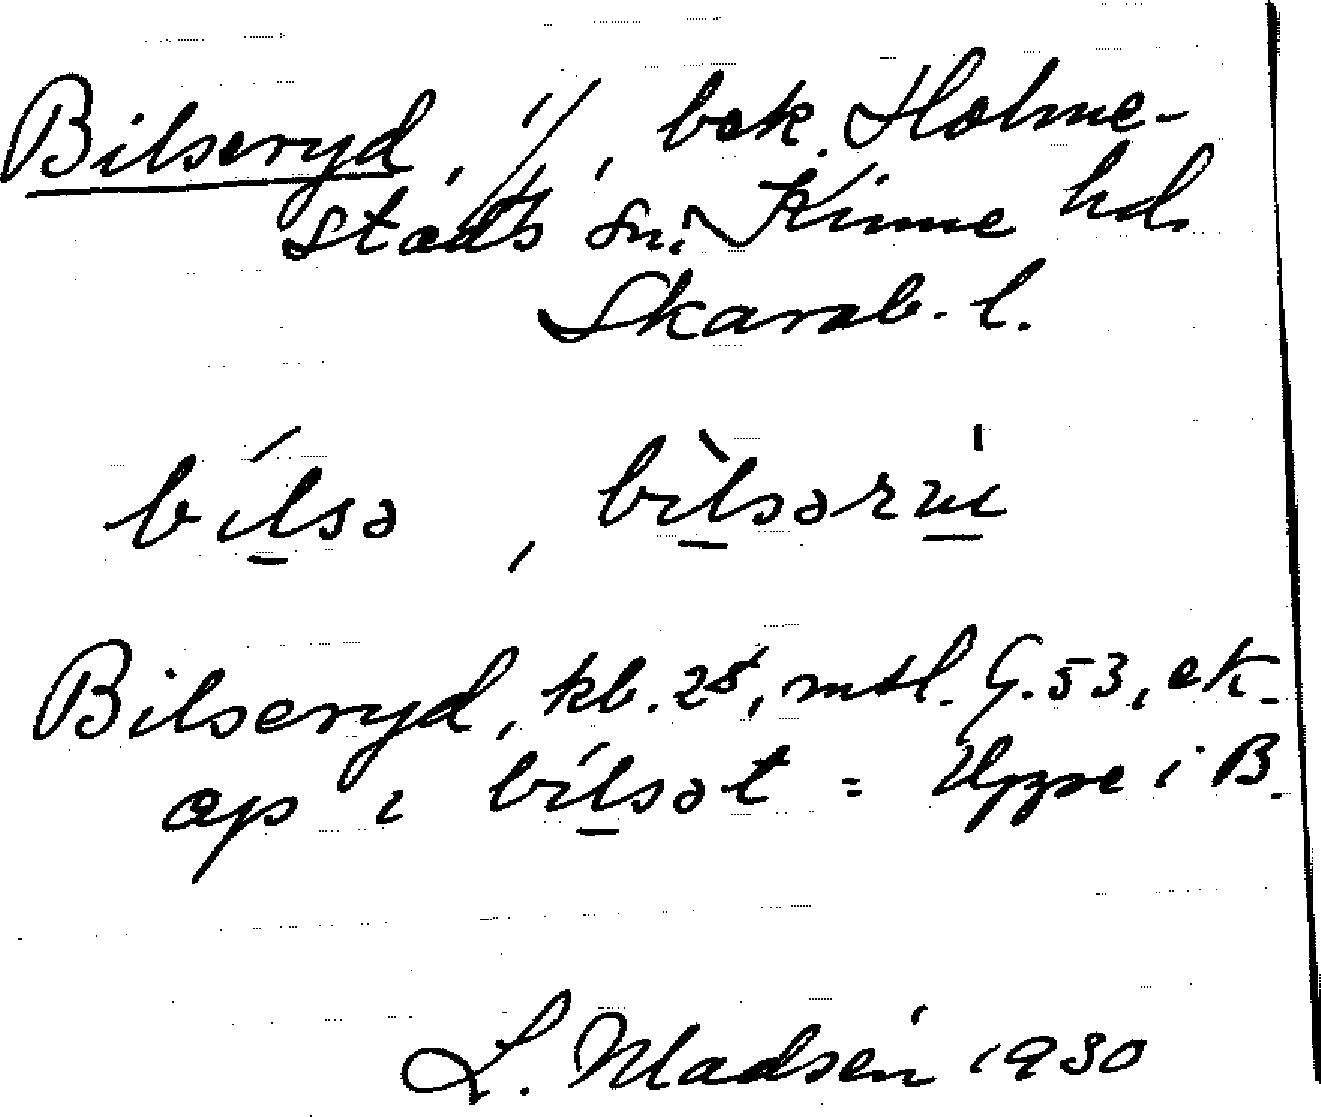 Bilseryd, //, bek. Holme-
stads sn. Kinne hd.
Skarab. l.
bílsə, bìlsərɯ
Bilseryd, kb. 28, mtl. G. 53, ek.
əp i bílsət = Uppe i B.
L. Madsén 1930